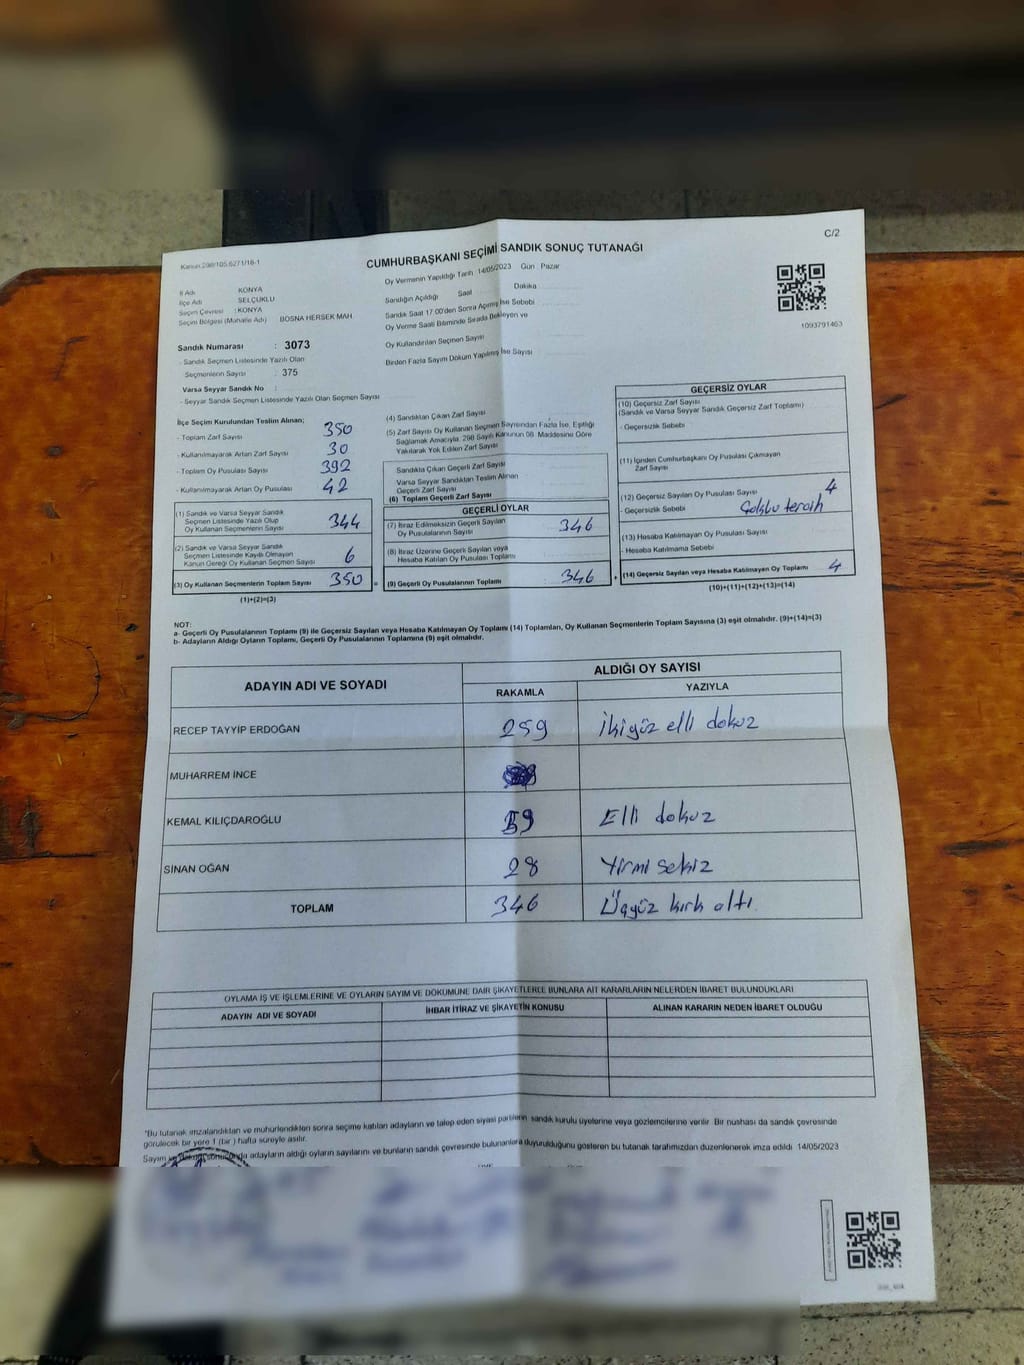 C/2
Kanun 298/105,6271/18-1
CUMHURBAŞKANI SEÇİMİ SANDIK SONUÇ TUTANAĞI
İl Adı KONYA
İlçe Adı SELÇUKLU
Seçim Çevresi : KONYA
Seçim Bölgesi (Mahalle Adı) BOSNA HERSEK MAH.
Sandık Numarası : 3073
- Sandık Seçmen Listesinde Yazılı Olan
Seçmenlerin Sayısı : 375
Varsa Seyyar Sandık No :
- Seyyar Sandık Seçmen Listesinde Yazılı Olan Seçmen Sayısı
Oy Vermenin Yapıldığı Tarih 14/05/2023 Gün : Pazar
Sandığın Açıldığı Saat Dakika
Sandık Saat 17.00'den Sonra Açılmış İse Sebebi
Oy Verme Saati Bitiminde Sırada Bekleyen ve
Oy Kullandırılan Seçmen Sayısı
Birden Fazla Sayım Döküm Yapılmış İse Sayısı
1093791463
İlçe Seçim Kurulundan Teslim Alınan;
- Toplam Zarf Sayısı 350
- Kullanılmayarak Artan Zarf Sayısı 30
- Toplam Oy Pusulası Sayısı 392
- Kullanılmayarak Artan Oy Pusulası 42
(1) Sandık ve Varsa Seyyar Sandık
Seçmen Listesinde Yazılı Olup
Oy Kullanan Seçmenlerin Sayısı 344
(2) Sandık ve Varsa Seyyar Sandık
Seçmen Listesinde Kayıtlı Olmayan
Kanun Gereği Oy Kullanan Seçmen Sayısı 6
(3) Oy Kullanan Seçmenlerin Toplam Sayısı 350 =
(1)+(2)=(3)
(4) Sandıktan Çıkan Zarf Sayısı
(5) Zarf Sayısı Oy Kullanan Seçmen Sayısından Fazla İse, Eşitliği
Sağlamak Amacıyla, 298 Sayılı Kanunun 98. Maddesine Göre
Yakılarak Yok Edilen Zarf Sayısı
Sandıkta Çıkan Geçerli Zarf Sayısı
Varsa Seyyar Sandıktan Teslim Alınan
Geçerli Zarf Sayısı
(6) Toplam Geçerli Zarf Sayısı
GEÇERLİ OYLAR
(7) İtiraz Edilmeksizin Geçerli Sayılan
Oy Pusulalarının Sayısı 346
(8) İtiraz Üzerine Geçerli Sayılan veya
Hesaba Katılan Oy Pusulası Toplamı
(9) Geçerli Oy Pusulalarının Toplamı 346 +
GEÇERSİZ OYLAR
(10) Geçersiz Zarf Sayısı
(Sandık ve Varsa Seyyar Sandık Geçersiz Zarf Toplamı)
- Geçersizlik Sebebi
(11) İçinden Cumhurbaşkanı Oy Pusulası Çıkmayan
Zarf Sayısı
(12) Geçersiz Sayılan Oy Pusulası Sayısı 4
- Geçersizlik Sebebi Çoklu tercih
(13) Hesaba Katılmayan Oy Pusulası Sayısı
- Hesaba Katılmama Sebebi
(14) Geçersiz Sayılan veya Hesaba Katılmayan Oy Toplamı 4
(10)+(11)+(12)+(13)=(14)
NOT:
a- Geçerli Oy Pusulalarının Toplamı (9) ile Geçersiz Sayılan veya Hesaba Katılmayan Oy Toplamı (14) Toplamları, Oy Kullanan Seçmenlerin Toplam Sayısına (3) eşit olmalıdır. (9)+(14)=(3)
b- Adayların Aldığı Oyların Toplamı, Geçerli Oy Pusulalarının Toplamına (9) eşit olmalıdır.
ADAYIN ADI VE SOYADI
ALDIĞI OY SAYISI
RAKAMLA YAZIYLA
RECEP TAYYİP ERDOĞAN 259 İkiyüz elli dokuz
MUHARREM İNCE
KEMAL KILIÇDAROĞLU 59 Elli dokuz
SİNAN OĞAN 28 Yirmi sekiz
TOPLAM 346 Üçyüz kırk altı
OYLAMA İŞ VE İŞLEMLERİNE VE OYLARIN SAYIM VE DÖKÜMÜNE DAİR ŞİKAYETLERLE BUNLARA AİT KARARLARIN NELERDEN İBARET BULUNDUKLARI
ADAYIN ADI VE SOYADI İHBAR İTİRAZ VE ŞİKAYETİN KONUSU ALINAN KARARIN NEDEN İBARET OLDUĞU
"Bu tutanak imzalandıktan ve mühürlendikten sonra seçime katılan adayların ve talep eden siyasi partilerin sandık kurulu üyelerine veya gözlemcilerine verilir. Bir nüshası da sandık çevresinde
görülecek bir yere 1 (bir) hafta süreyle asılır.
Sayım ve adayların aldığı oyların sayılarını ve bunların sandık çevresinde bulunanlara duyurulduğunu gösteren bu tutanak tarafımızdan düzenlenerek imza edildi 14/05/2023